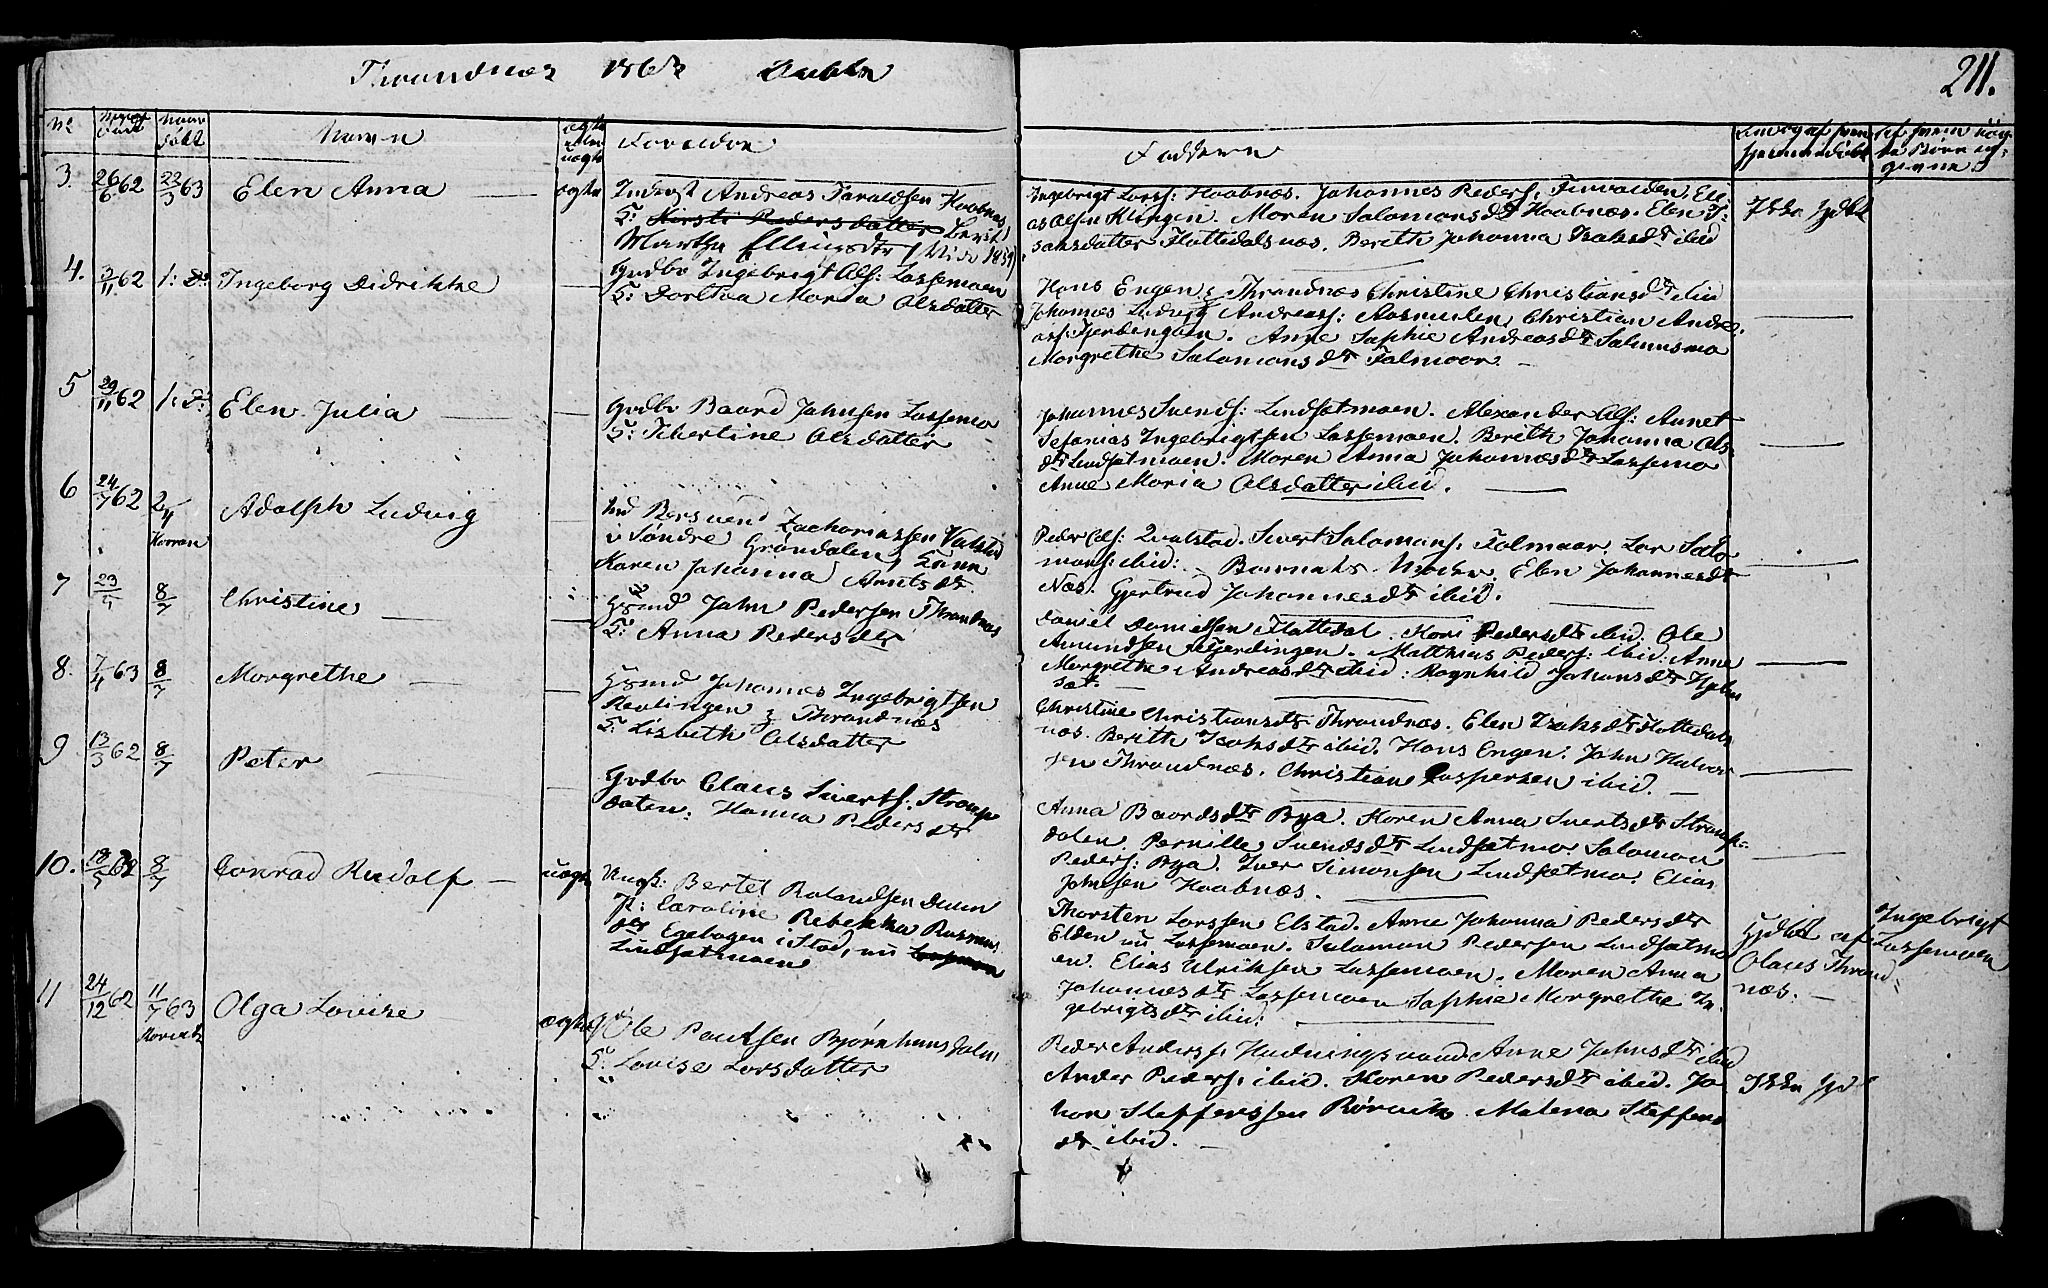 Thrandnæs 1863 Døbte
211.
No
Naar
født
Naar
døbt
Navn
ægte
eller
uægte
Forældre
Faddere
3. 26/6 62 22/3 63 Elen Anna ægte
Andreas Haraldsen Haabnæs
H: Kirsti Pedersdatter Berit
Martha Ellingsdtr (Vide 1859)
Ingebrigt Larss: Haabnæs. Johannes Peders: Finvolden. Eli-
as Olsen Klingen. Maren Salomonsdtr Haabnæs. Elen I-
saksdatter Flottedalsnæs. Berith Johanna Isaksdtr ibid
Ikke hjdbt
4. 3/11 62 1: D: Ingeborg Didrikke
Grdbr Ingebrigt Ols: Lassemoen
H: Dorthea Maria Olsdatter
Hans Engen, Thrandnæs Christine Christiansdtr ibid
Johannes Ludvig Andreass: Aasmulen, Christian Andre-
ass: Gjerdengen. Anne Sophie Andreasdtr Salmusmo
Margrethe Salomonsdtr Folmoor. —
5 29/11 62 1: D: Elen Julia
Grdbr Baard Johnsen Lassemo
H: Ibertine Olsdatter
Johannes Svends: Lindsetmoen. Alexander Ols: Annet
Sefanias Ingebrigtsen Lassemoen. Berith Johanna Ols-
dtr Lindsetmoen. Maren Anna Johannesdtr Lassemo
Anne Maria Olsdatter ibid.
6 24/7 62 2/4 Adolph Ludvig
Harran
Ind Bersvend Zachariassen
i Søndre Grøndalen, Kone
Karen Johanna Arntsdtr
Peder Ols: Qvalstad. Sivert Salomons: Folmoar. Lar Salo-
mons: ibid: Barnets Moder. Elen Johannesdtr
Næs. Gjertrud Johannesdtr ibid.
7 23/4 8/7 Christine
Hsmd John Pedersen Thrandnæs
H: Anna Pedersdtr
Daniel Danielsen Flottedal. Kari Pedersdtr ibid. Ole
Amundsen Gjerdingen. Matthias Peders: ibid: Anne
Margrethe Andreasdtr ibid: Ragnhild Johansdtr
sæt. —
8. 7/4 63 8/7 Margrethe
Hsmd Johannes Ingebrigtsen
Thrandnæs
H: Lisbeth Olsdatter
Christine Christiansdtr Thrandnæs. Elen Isaksdtr Flottedals-
næs. Berith Isaksdtr ibid. Hans Engen. John Halvor-
sen Thrandnæs. Christian Caspersen ibid. —
9 13/3 62 8/7 Peter
Grdbr Claus Siverts: Stromp-
dalen: Hanna Pedersdtr
Anna Baardsdtr Bya. Karen Anna Sivertsdtr Stromp-
dalen. Pernille Svendsdtr Lindsetmo. Salomon
Peders: Bya. Iver Simonsen Lindsætmo. Elias
Johnsen Haabnæs.
10. 8/7 Conrad Rudolf — uægte
Ungk: Bertel Rolandsen Duun
P: Caroline Rebekka Rasmus-
dtr Egebogen i Stod, nu
Lindsætmoen
Thorsten Larssen Elstad. Anne Johanna Pedersdtr
Elden nu Lassemoen. Salomon Pedersen Lindsætmo-
en. Elias Ulriksen Lassemoen. Maren Anna
Johannesdtr Lassemoen Sophie Margrethe In-
gebrigtsdtr ibid.
Hjdbt af
Olaus Thrand-
næs. —
Ingebrigt
Lassemoen
11 24/12 62 11/7 63 Olga Lovise ægte
Ole Paulsen Bjørnhusdalen
H: Lovise Larsdatter
Peder Anderss: Hudningsvand. Anne Johnsdtr ibid
Ander Peders: ibid. Karen Pedersdtr ibid. Jo-
han Staffenssen Rørvik. Malena Staffens-
dtr ibid. —
Ikke